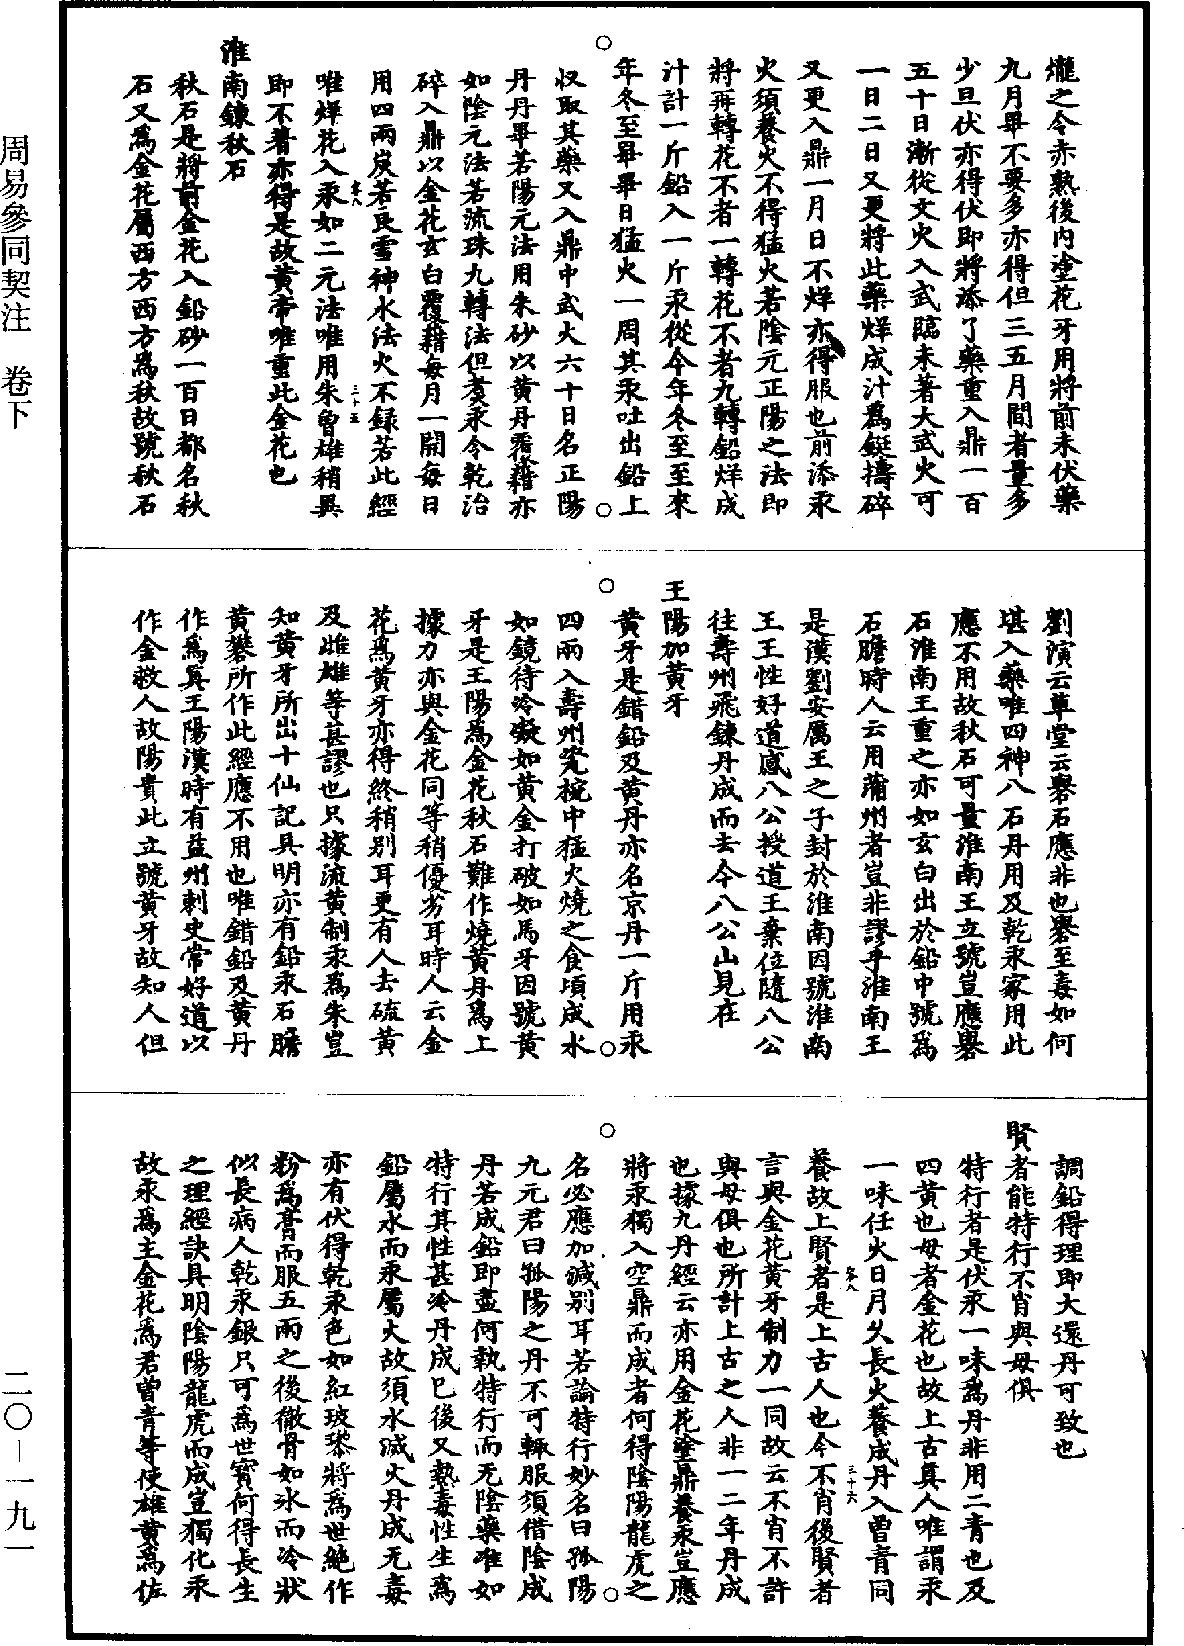 爐之令赤熟後內塗花牙用將前未伏藥
九月畢不要多亦得但三五月間者量多
少旦伏亦得伏即將添了藥重入鼎一百
五十日漸從文火入武臨未著大武火可
一日二日又更將此藥烊成汁為鋌擣碎
又更入鼎一月日不烊亦得服也前添汞
火須養火不得猛火若陰元正陽之法即
將再轉花不者一轉花不者九轉鉛烊成
汁計一斤鉛入一斤汞從今年冬至至來
年冬至畢畢日猛火一周其汞吐出鉛上
収取其藥又入鼎中武火六十日名正陽
丹丹畢若陽元法用朱砂以黃丹覆藉亦
如陰元法若流珠九轉法但煑汞令乾治
碎入鼎以金花玄白覆藉每月一開每日
用四兩炭若良雪神水法火不録若此經
唯烊花入汞如二元法唯用朱曾雄稍異
即不著亦得是故黃帝唯重此金花也
淮南鍊秋石
秋石是將前金花入鉛砂一百日都名秋
石又為金花屬西方西方為秋故號秋石
劉演云草堂云礜石應非也礜至毒如何
堪入藥唯四神八石丹用及乾汞家用此
應不用故秋石可量淮南王立號豈應礜
石淮南王重之亦如玄白出於鉛中號為
石膽時人云用蒲州者豈非謬乎淮南王
是漢劉安厲王之子封於淮南因號淮南
王王性好道感八公授道王棄位隨八公
往壽州飛鍊丹成而去今八公山見在
王陽加黃牙
黃牙是錯鉛及黃丹亦名京丹一斤用汞
四兩入壽州瓷椀中猛火燒之食頃成水
如鏡待冷凝如黃金打破如馬牙因號黃
牙是王陽為金花秋石難作燒黃丹為上
據力亦與金花同等稍優劣耳時人云金
花為黃牙亦得終稍別耳更有人去硫黃
及雌雄等甚謬也只據流黃制汞為朱豈
知黃牙所出十仙記具明亦有鉛汞石膽
黃礬所作此經應不用也唯錯鉛及黃丹
作為真王陽漢時有益州刺史常好道以
作金救人故陽貴此立號黃牙故知人但
調鉛得理即大還丹可致也
賢者能特行不肖與母俱
特行者是伏汞一味為丹非用二青也及
四黃也母者金花也故上古真人唯謂汞
一味任火日月久長火養成丹入曾青同
養故上賢者是上古人也今不肖後賢者
言與金花黃牙制力一同故云不肖不許
與母俱也所計上古之人非一二年丹成
也據九丹經云亦用金花塗鼎養汞豈應
將汞獨入空鼎而成者何得陰陽龍虎之
名必應加減別耳若論特行妙名曰孤陽
九元君曰孤陽之丹不可輙服須借陰成
丹若成鉛即盡何執特行而无陰藥准如
特行其性甚冷丹成已後又熱毒性生為
鉛屬水而汞屬火故須水滅火丹成无毒
亦有伏得乾汞色如紅玻瓈將為世絕作
粉為膏而服五兩之後徹骨如氷而冷狀
似長病人乾汞銀只可為世寶何得長生
之理經訣具明陰陽龍虎而成豈獨化汞
故汞為主金花為君曾青等使雄黃為佐
周易參同契注　卷下
二〇－一九一